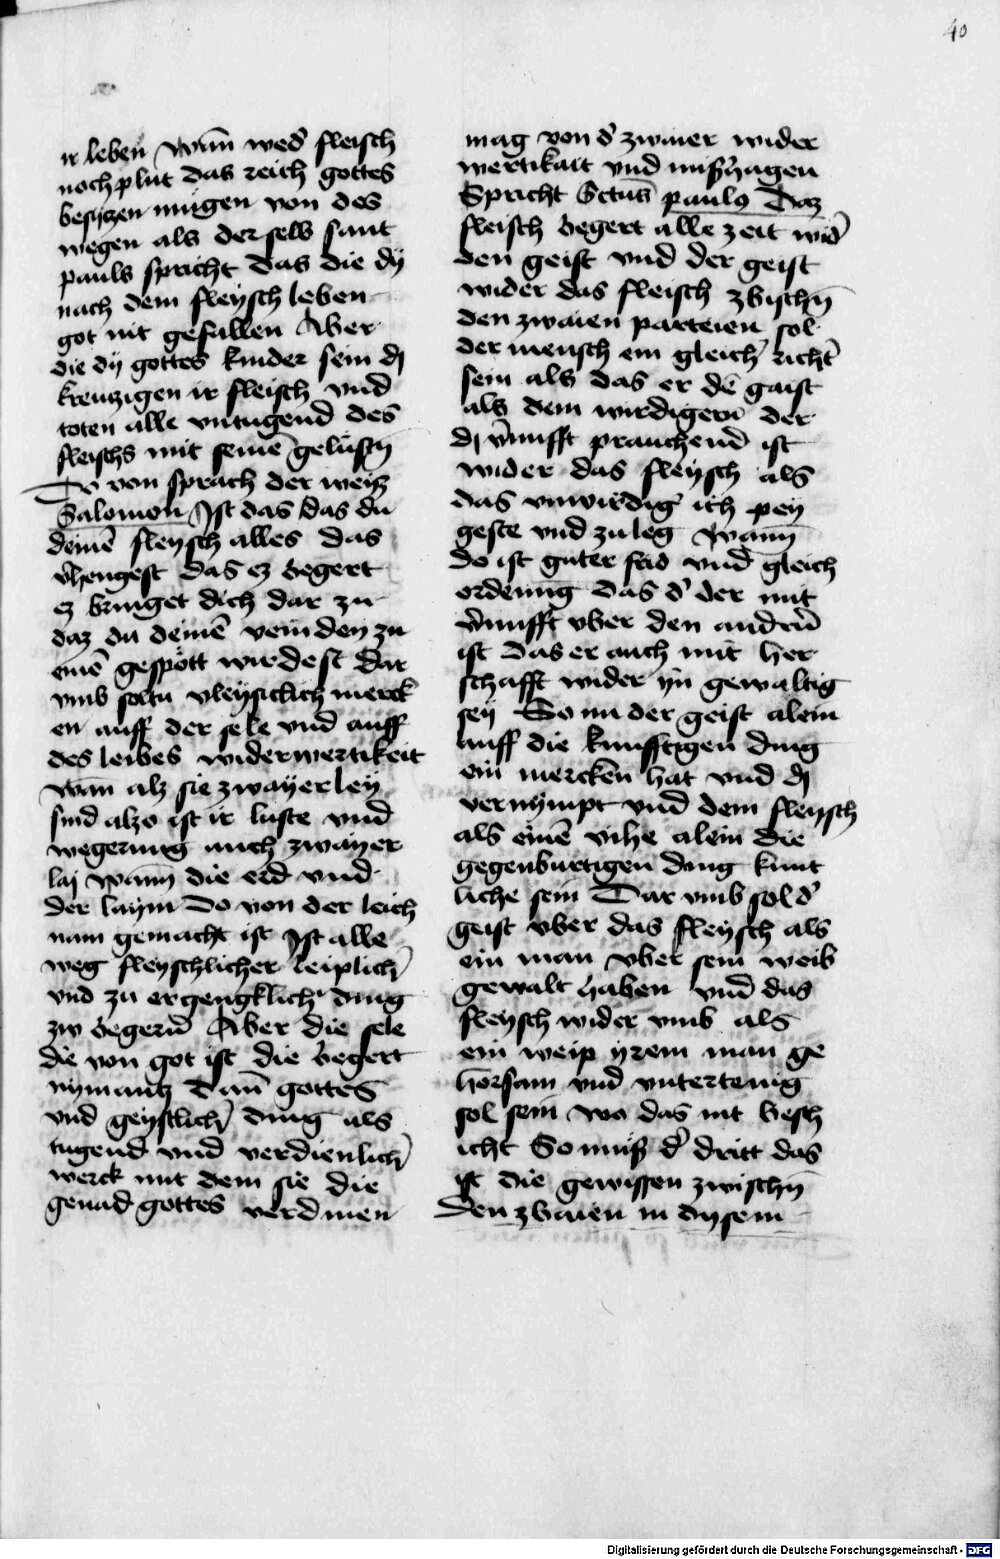 40
ir leben Wañ wed̉ fleisch
noch plut das reich gottes
besyzen mugen von des
wegen als der selb sant
pauls spricht das die dy
nach dem fleysch leben
got nit gefallen Aber
die dy gottes kinder sein dy
kreuzigen ir fleisch vnd
toten alle vntugend des
fleischs mit seinē gelustn̄
Do von sprach der weiß
Salomon Ist das das du
deinē fleysch alles das
v̉hengest das ez begert
ez bringet dich dar zu
daz du deinē veinden zu
einē gespött wirdest Dar
vmb soltu vleysiclich merck
en auff der sele vnd auff
des leibes widerwertikeit
Wañ alz sie zwayerley
sind alzo ist ir luste vnd
wegerung auch zwayer
lai Wann̄ die erd vnd
der laym Do von der leich
nam gemacht ist Ist alle
weg fleyschlicher leiplich̉
vnd zu ergengklich̉ ding
zw begern̄ Aber die sele
die von got ist die begert
nymantz Dañ gottes
vnd geystlich̉ ding als
tugend vnd verdienlich̉
werck mit dem sie die
genad gottes verdinen
mag von d̉ zwaier wider
wertikait vnd mißhagen
Spricht Sctus paulꝰ Daz
fleisch begert alle zeit wid̉
den geist vnd der geist
wider das fleisch zbischn̄
den zwaien parteien sol
der mensch ein gleich̉ richt̉
sein als das er dē gaist
als dem wirdigern̄ der
dy v̉nufft prauchend ist
wider das fleysch als
das vnwirdig̉ ich pey
geste vnd zuleg Wann̄
do ist guter frid vnd gleich
ordenung das d̉ der mit
v̉nufft vber den andrn̄
ist das er auch mit her
schafft wider yn gewaltig
sey So nu der geist alein
auff die kunfftigen ding
ein mercken hat vnd dy
vernympt vnd dem fleysch
als einē vihe alein die
gegenburtigen ding kunt
liche sein Dar vmb sol d̉
geist vber das fleysch als
ein man vber sein weib
gewalt haben vnd das
fleysch wider vmb als
ein weip yrem man ge
horsam vnd vntertenig
sol sein wo das nit besch
icht So muß d̉ dritt das
ist die gewissen zwischn̄
den zbaien in dysem
Digitalisierung gefördert durch die Deutsche Forschungsgemeinschaft - DFG